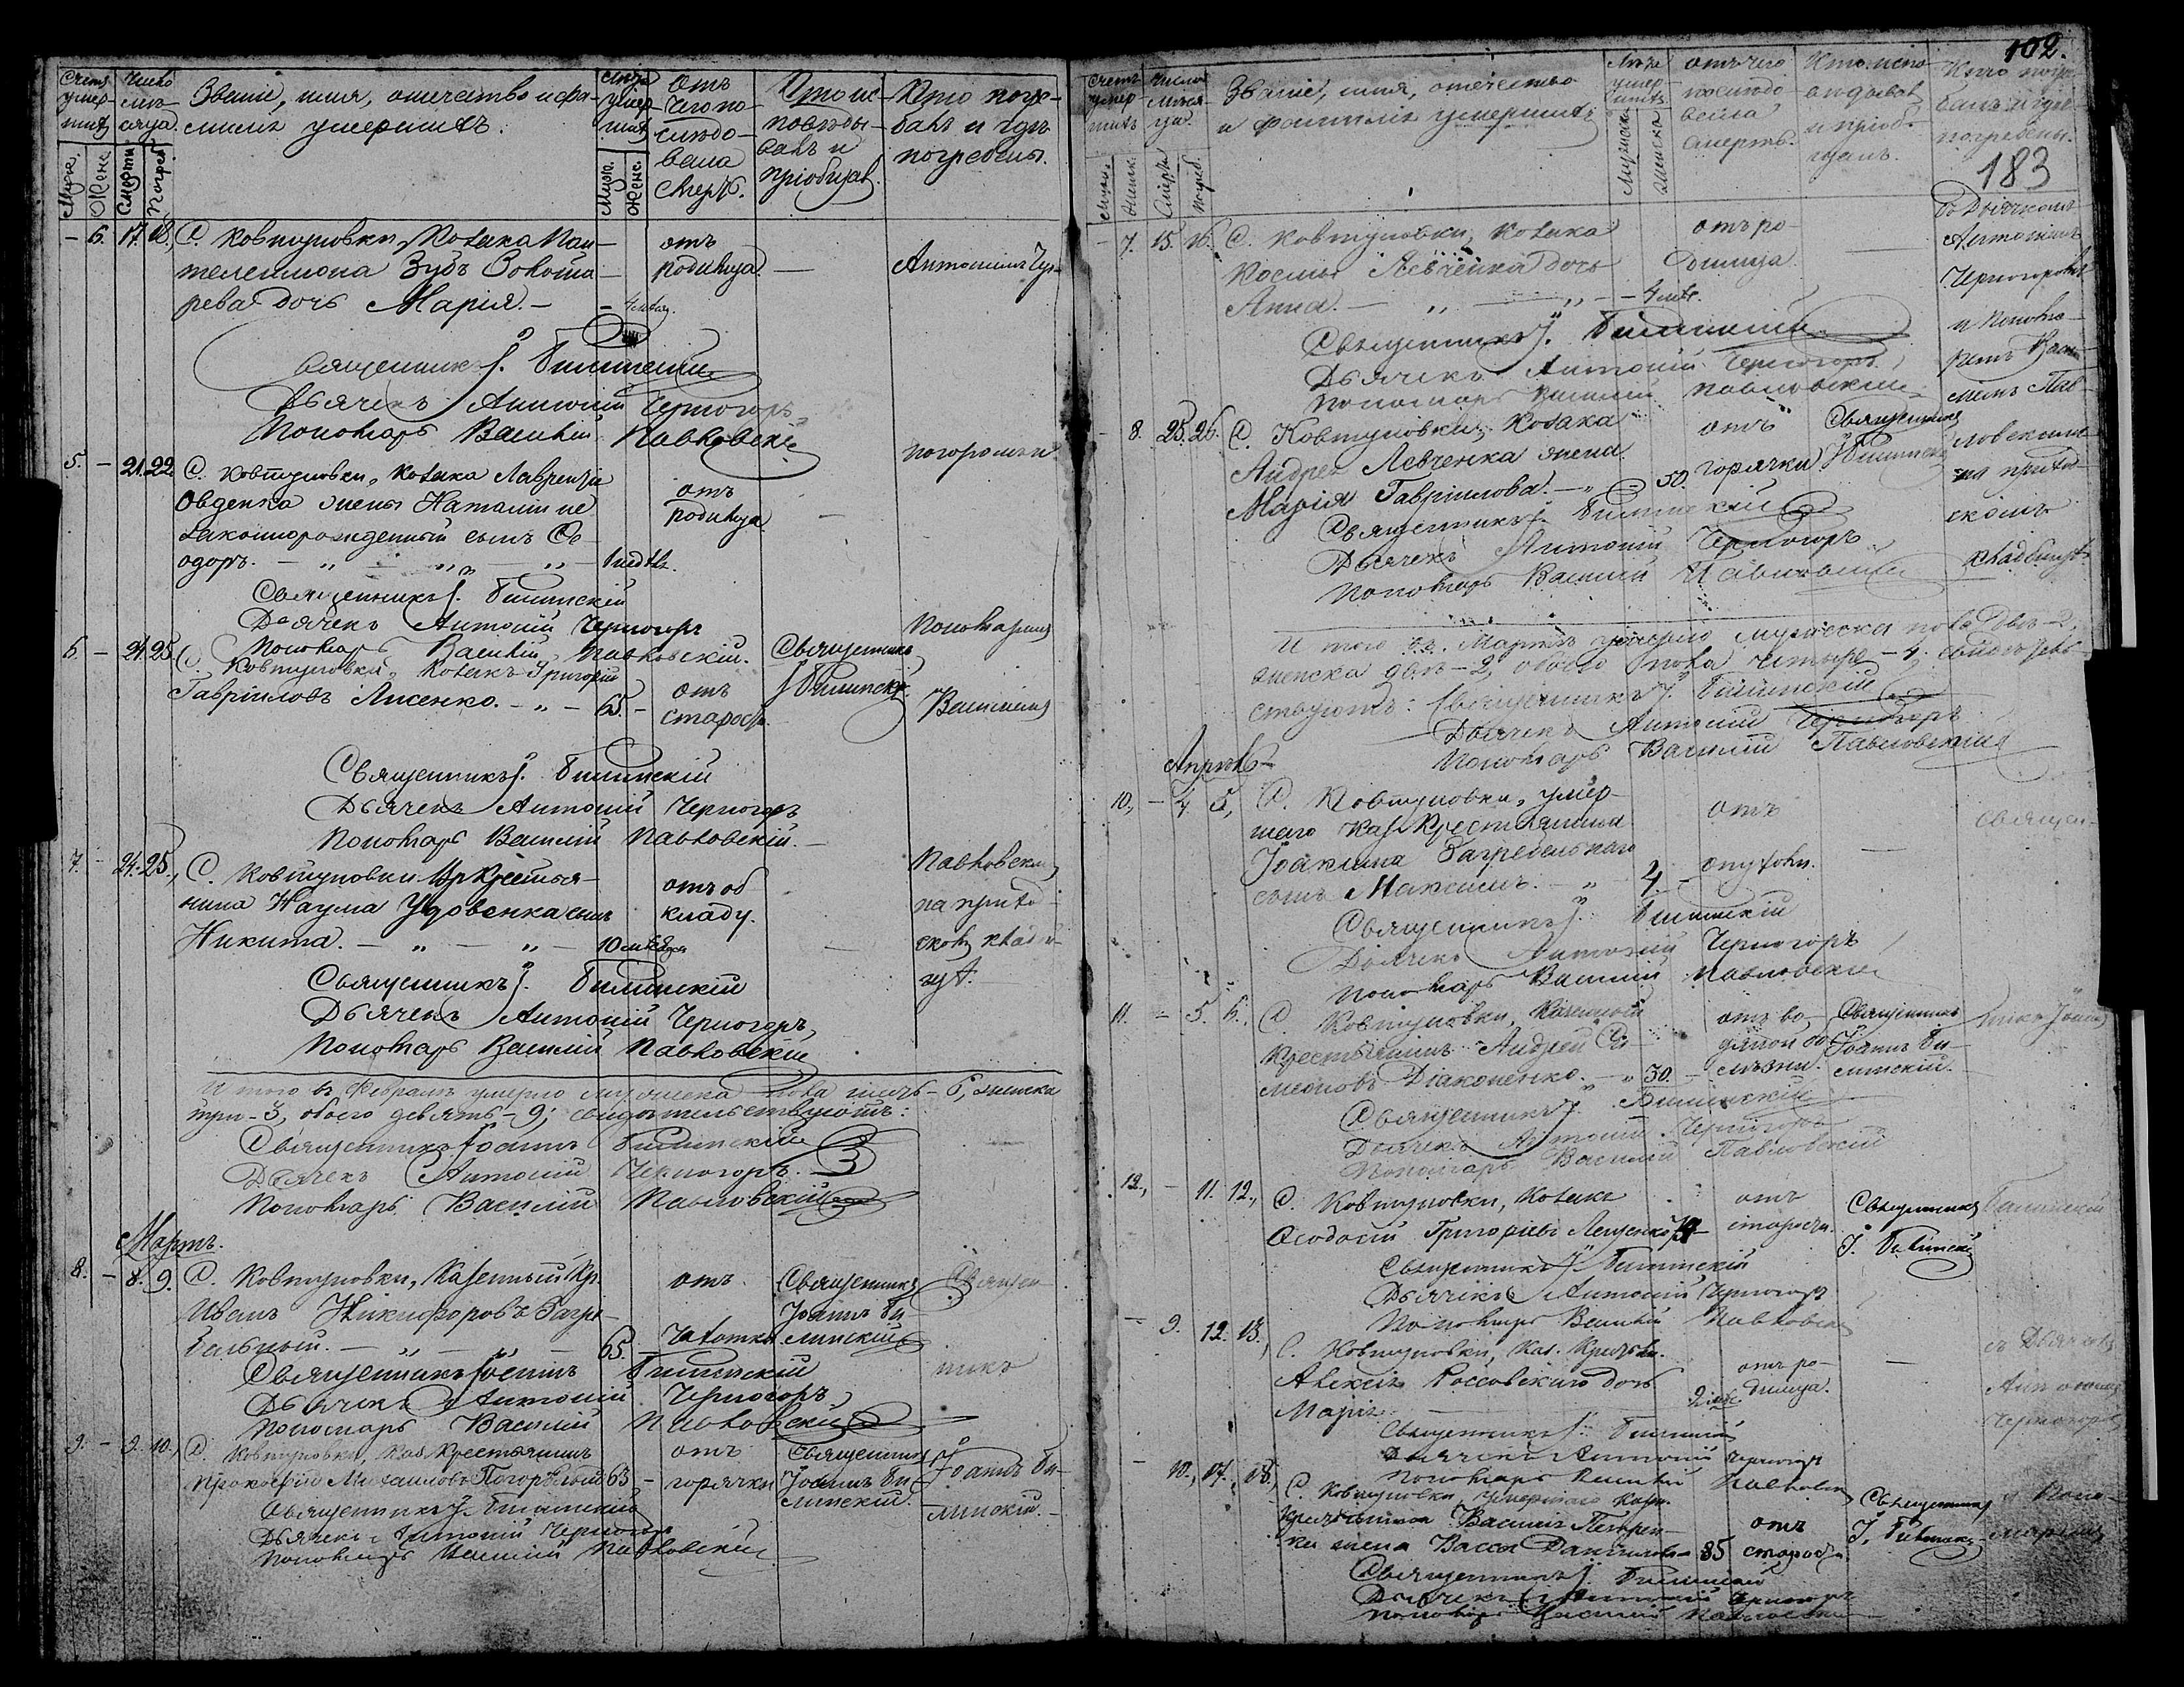 Счетъ умер-шихъ
Муж. Женс.
Число мѣ-сяца.
Смерти Погреб.
Званіе, имя, отечество и фа-
миліи умершихъ.
Лѣта умер-шихъ
Муж. Женс.
Отъ
чего по-
слѣдо-
вала
смерть.
Кто ис-
повѣды-
валъ и
пріобщалъ.
Кто погре-
балъ и гдѣ
погребены.
— 6. 17. 18.
С. Ковтуновки, Козака Пан-
телеимона Зубъ
дочь Марія. —
отъ
родимца. —
Антоніемъ Чер-
Священникъ І. Билинскій
Дьячекъ Антоній Черногоръ
Пономарь Василій Павловскій
5. — 21. 22.
С. Ковтуновки, Козака Лаврентія
Овденка жены Наталіи не
законнорожденный сынъ Ѳе-
одоръ. —
1 нед
отъ
родимца —
ногоромъ и
Священникъ І. Билинскій
Дьячекъ Антоній Черногоръ
Пономарь Василій Павловскій.
6. — 24. 25.
С. Ковтуновки, Козакъ Григорій
Гавриловъ Лисенко. — 65. —
отъ
старости.
Священникъ
І. Билинскій.
Пономаремъ
Василіемъ
Священникъ І. Билинскій
Дьячекъ Антоній Черногоръ
Пономарь Василій Павловскій.
7. — 24. 25.
С. Ковтуновки крестья-
нина Наума Удовенка сынъ
Никита. — 10
отъ об
кладу.
Павловскимъ
на приход-
скомъ кладби-
щѣ.
Священникъ І. Билинскій
Дьячекъ Антоній Черногоръ
Пономарь Василій Павловскій
И того въ Февралѣ умерло мужеска пола шесть – 6, женска
три – 3, обоего девять – 9; свидѣтельствуютъ:
Священникъ Іоаннъ Билинскій
Дьячекъ Антоній Черногоръ.
Пономарь Василій Павловскій
Мартъ.
8. — 8. 9.
С. Ковтуновки, Казенный Кр.
Иванъ Никифоровъ Загре-
бельный. — 65. —
отъ
чахотки
Священникъ
Іоаннъ Би-
линскій
Священ-
никъ
Священникъ Іоаннъ Билинскій
Дьячекъ Антоній Черногоръ
Пономарь Василій Павловскій
9. — 9. 10.
С. Ковтуновки, Каз. Крестьянинъ
Прокофій Михаиловъ Погорѣлый 63 —
отъ
горячки
Священникъ
Іоаннъ Би-
линскій.
Іоаннъ Би-
линскій. —
Священникъ І. Билинскій
Дьячекъ Антоній Черногоръ
Пономарь Василій Павловскій
102.
Счетъ умер-шихъ
Число мѣся-ца.
Смерти Погреб.
Званіе, имя, отечество
и фамиліи умершихъ
Лѣта умер-шихъ
Мужеска Женска
отъ чего
послѣдо-
вала
смерть.
Кто испо-
вѣдывалъ
и пріоб-
щалъ.
Кто погре-
балъ и гдѣ
погребены.
183
— 7. 15. 16.
С. Ковтуновки, Козака
Космы Левченка дочь
Анна. — 4
отъ ро-
димца
—
съ Дьячкомъ
Антоніемъ
Черногоромъ
и Понома-
ремъ Васи-
ліемъ Пав-
Священникъ І. Билинскій
Дьячекъ Антоній Черногоръ
Пономарь Василій Павловскій
— 8. 25. 26.
С. Ковтуновки, Козака
Андрея Левченка жена
Марія Гавріилова. — 50.
отъ
горячки
Священникъ
І. Билинскій
ловскимъ
на приход-
скомъ
кладбищѣ
Священникъ І. Билинскій
Дьячекъ Антоній Черногоръ
Пономарь Василій Павловскій
И того въ Мартѣ умерло мужеска пола два – 2,
женска двѣ – 2, обоего пола четыре – 4, свидѣтель-
ствуютъ: Священникъ І. Билинскій
Дьячекъ Антоній Черногоръ
Пономарь Василій Павловскій
Апрѣль
10. — 4. 5.
С. Ковтуновки, умер-
шаго Каз. Крестьянина
Іоакима Загребельнаго
сынъ Максимъ. — 4. —
отъ
опухоли.
—
Священ-
Священникъ І. Билинскій
Дьячекъ Антоній Черногоръ
Пономарь Василій Павловскій
11. — 5. 6.
С. Ковтуновки, Казенный
Крестьянинъ Андрей Си-
меоновъ Діаконенко. — 30. —
отъ во-
дяной бо-
лѣзни.
Священникъ
Іоаннъ Би-
линскій.
никъ Іоаннъ
Священникъ І. Билинскій
Дьячекъ Антоній Черногоръ
Пономарь Василій Павловскій
12. — 11. 12.
С. Ковтуновки, Козакъ
Ѳеодосій Григорьевъ Лещенко
отъ
старости.
Священникъ
І. Билинскій
Билинскій
Священникъ І. Билинскій
Дьячекъ Антоній Черногоръ
Пономарь Василій Павловскій
— 9. 12. 13.
С. Ковтуновки, Каз. Крестьян.
Алексѣя Россовскаго дочь
Марія
отъ ро-
димца.
—
съ Дьячкомъ
Антоніемъ
Черногоромъ
Священникъ І. Билинскій
Дьячекъ Антоній Черногоръ
Пономарь Василій Павловскій
— 10. 17. 18.
С. Ковтуновки, умершаго Казен.
Крестьянина Василія Петрен-
ка жена Васса Даніилова — 85
отъ
старости
Священникъ
І. Билинскій
и Поно-
маремъ
Священникъ І. Билинскій
Дьячекъ Антоній Черногоръ
Пономарь Василій Павловскій